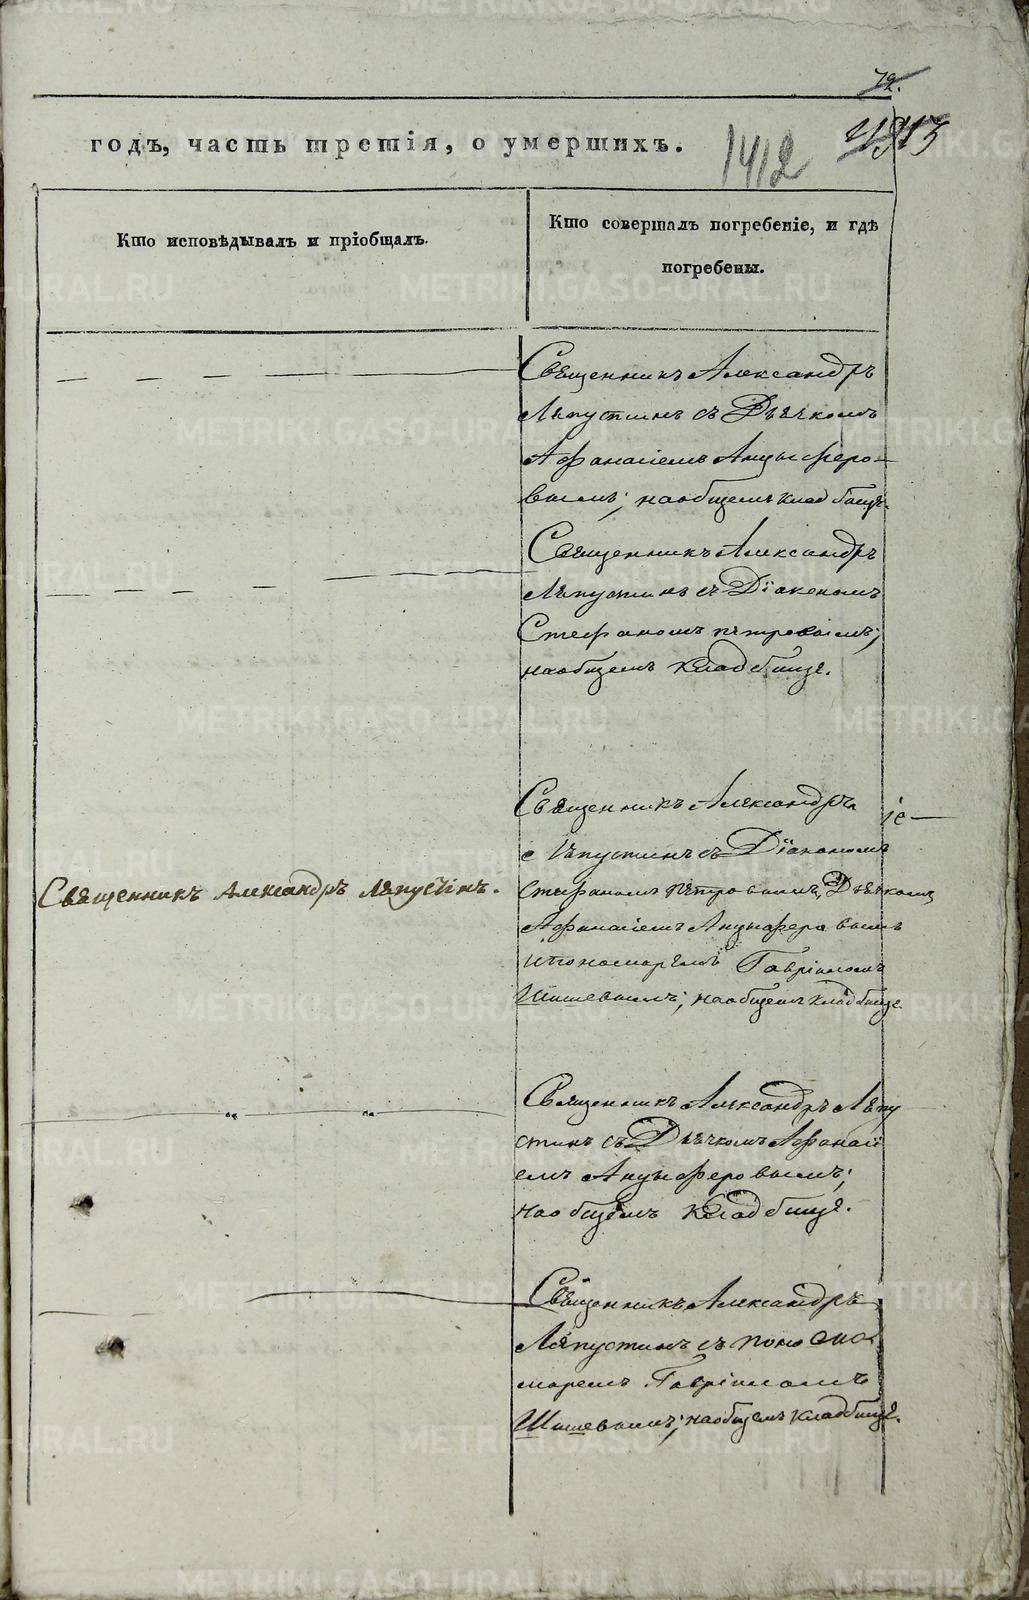 72.
годъ, часть третія, о умершихъ.
1412
Кто исповѣдывалъ и пріобщалъ.
Кто совершалъ погребеніе, и гдѣ
погребены.
Священникъ Александръ
Ляпустинъ съ Дьячкомъ
Афанасіемъ Анцыферо-
вымъ; наобщемъ кладбищѣ.
Священникъ Александръ
Ляпустинъ съ Діакономъ
Стефаномъ Петровымъ;
наобщемъ кладбищѣ.
Священникъ Александръ
Ляпустинъ съ Діакономъ
Стефаномъ Петровымъ, Дьячкомъ
Священникъ Александръ Ляпустинъ.
Афанасіемъ Анцыферовымъ
ипономаремъ Гавріиломъ
Шишевымъ; наобщемъ кладбищѣ
Священникъ Александръ Ляпу
стинъ съ Дьячкомъ Афанасі
емъ Анцыферовымъ;
наобщемъ кладбищѣ.
Священникъ Александръ
Ляпустинъ съ поно
маремъ Гавріиломъ
Шишевымъ; наобщемъ кладбищѣ.
METRIKI.GASO-URAL.RU